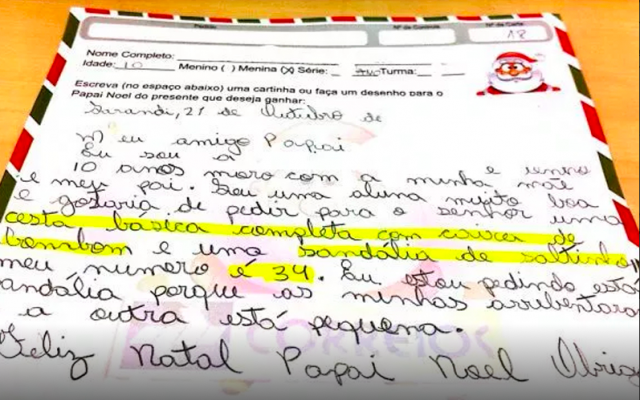 Pedido Nº de Controle Nº da Carta
18
Nome Completo:
Idade: 10 Menino ( ) Menina (X) Série: 4º Turma:
Escreva (no espaço abaixo) uma cartinha ou faça um desenho para o
Papai Noel do presente que deseja ganhar:
Sarandi, 21 de Outubro de
Meu amigo Papai
Eu sou a
10 anos moro com a minha mãe e
e meu pai. Sou uma aluna muito boa
e gostaria de pedir para o senhor uma
cesta básica completa com caixa de
bombom e uma sandália de saltinho"
meu numero é 34. Eu estou pedindo está
andália porque as minhas arrebentara
a outra está pequena.
Feliz Natal Papai Noel Obrig
CORREIOS